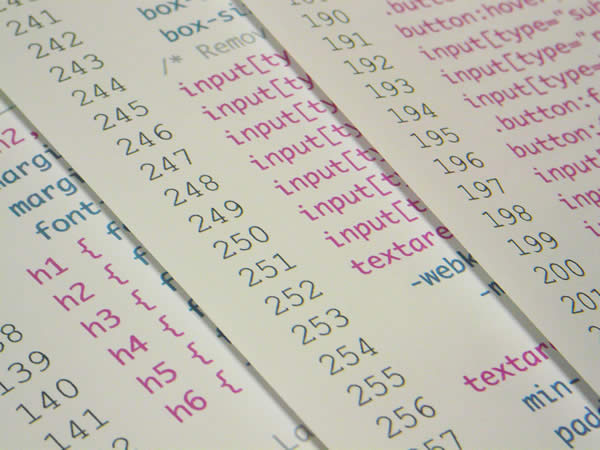 h2,
margi
margi
font-
h1 { f
h2 { f
h3 { f
h4 { f
h5 { f
h6 {
139
140
141
La
241
242 box-
243 box-si
244 /* Remov
245 input[ty
246 input[ty
247 input[ty
248 input[ty
249 input[ty
250 input[ty
251 input[t
252 textare
253 -webk
254 -m
255
256 textar
257 min-
pad
190 .button
191 button:hover
192 input[type="sub
193 input[type="
194 input[type=
195 .button:f
196 button:
197 input
198 inpu
199 inp
200
201